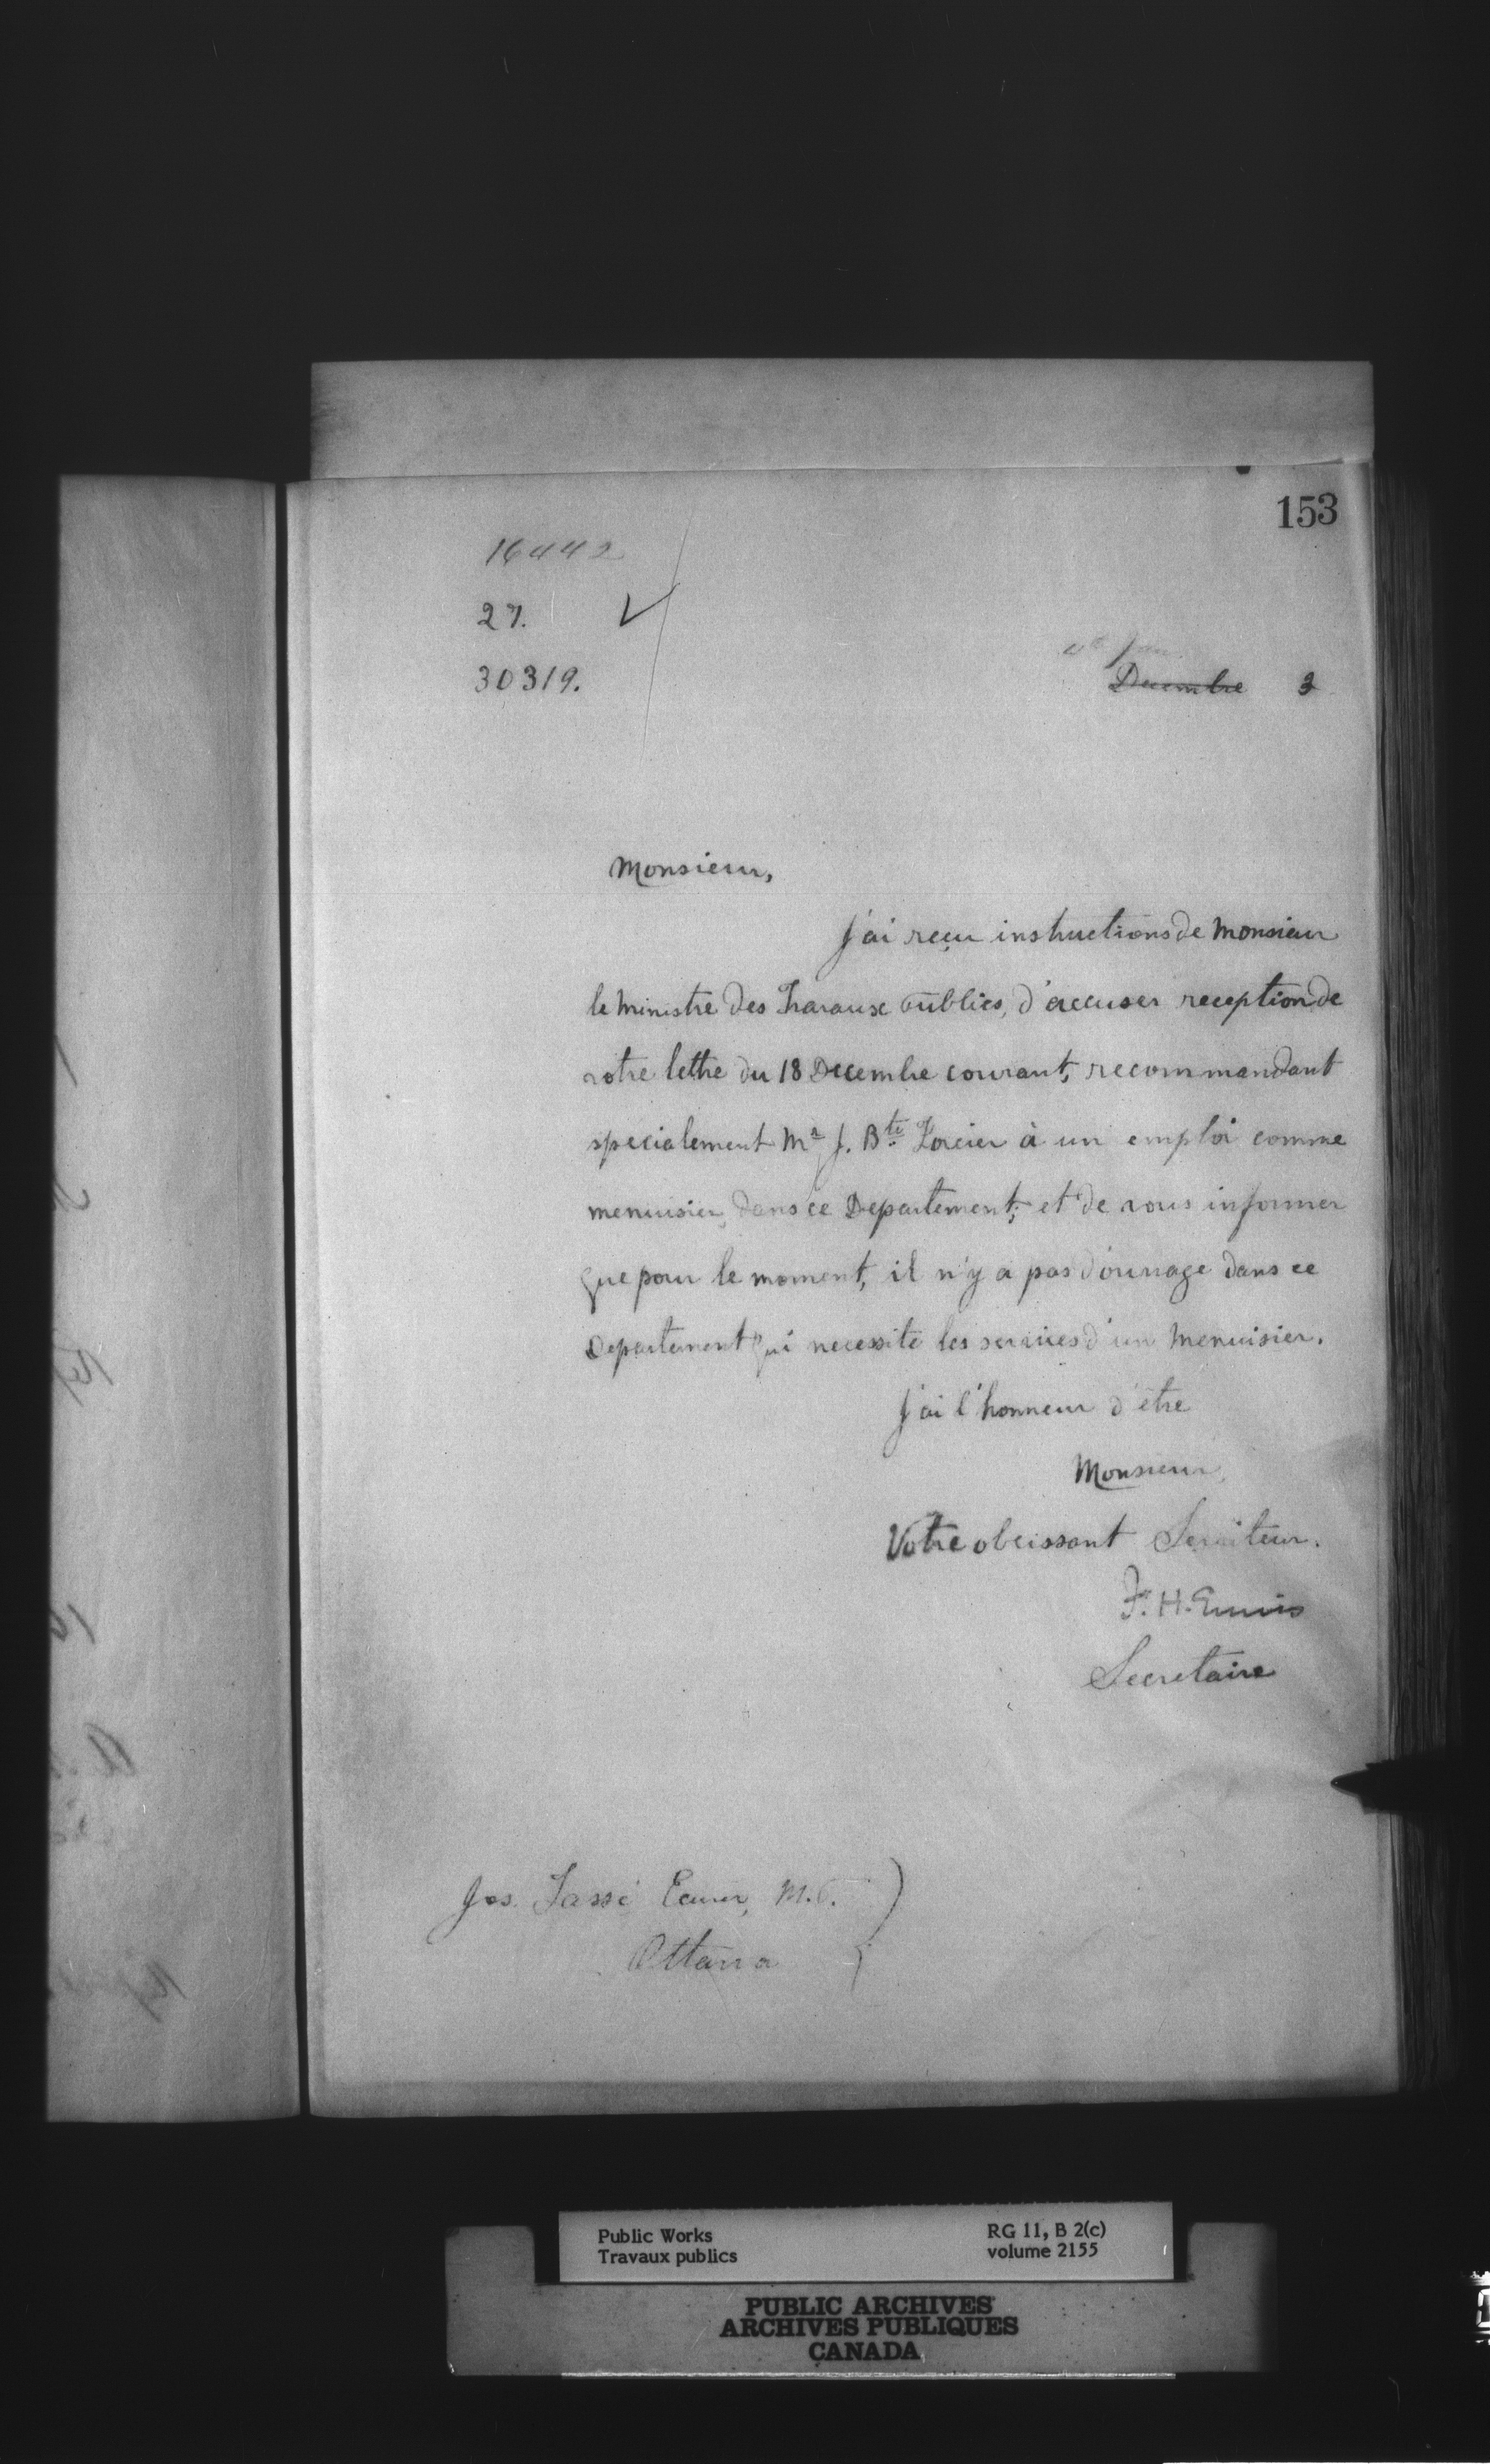 153
16442
27.
30319.
Jan
Decembre 3
Monsieur,
J'ai reçu instructions de Monsieur
le Ministre des Travaux Publics, d'accuser reception de
votre lettre du 18 Decembre courant, recommandant
specialement Mr J. Bte Forcier à un emploi comme
menuisier, dans ce Departement; et de vous informer
que pour le moment, il n'y a pas d'ouvrage dans ce
Departement qui necessite les services d'un Menuisier.
J'ai l'honneur d'être
Monsieur,
Votre obeissant Serviteur.
F. H. Ennis
Secretaire
Jos. Tassé Ecuier, M.P.
Ottawa
Public Works
Travaux publics
RG 11, B 2(c)
volume 2155
PUBLIC ARCHIVES
ARCHIVES PUBLIQUES
CANADA